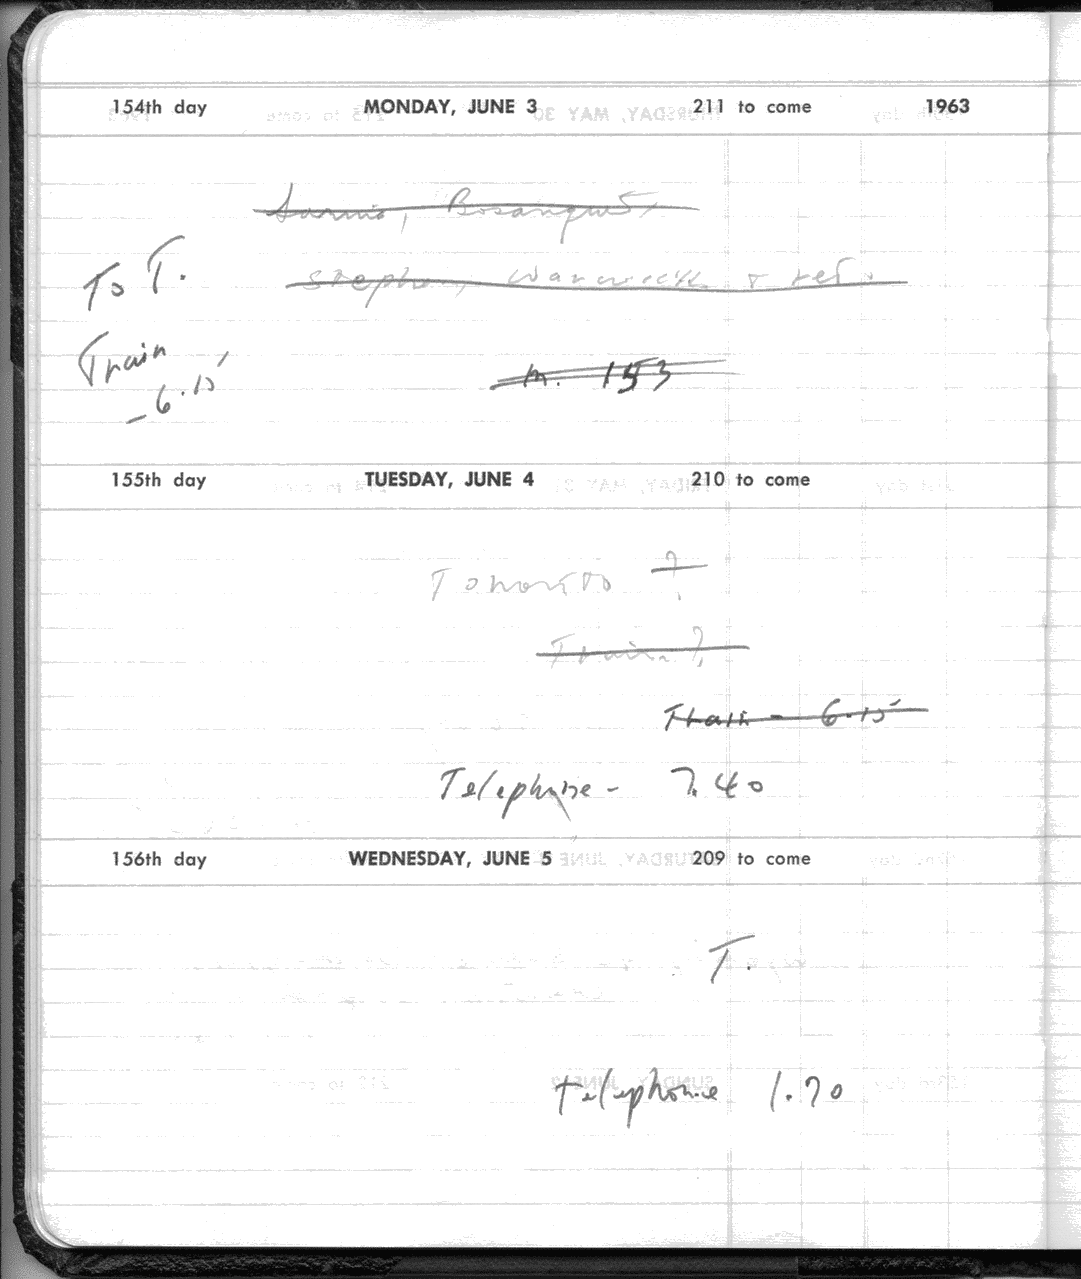 154th day MONDAY, JUNE 3 211 to come 1963
Sarnia, Bosanquet,
To T.
Stephen, Warwick + ret.
Train
- 6.15
m. 153
155th day TUESDAY, JUNE 4 210 to come
Toronto ?
Train ?
Train - 6.15
Telephone - 7.40
156th day WEDNESDAY, JUNE 5 209 to come
T.
telephone 1.70